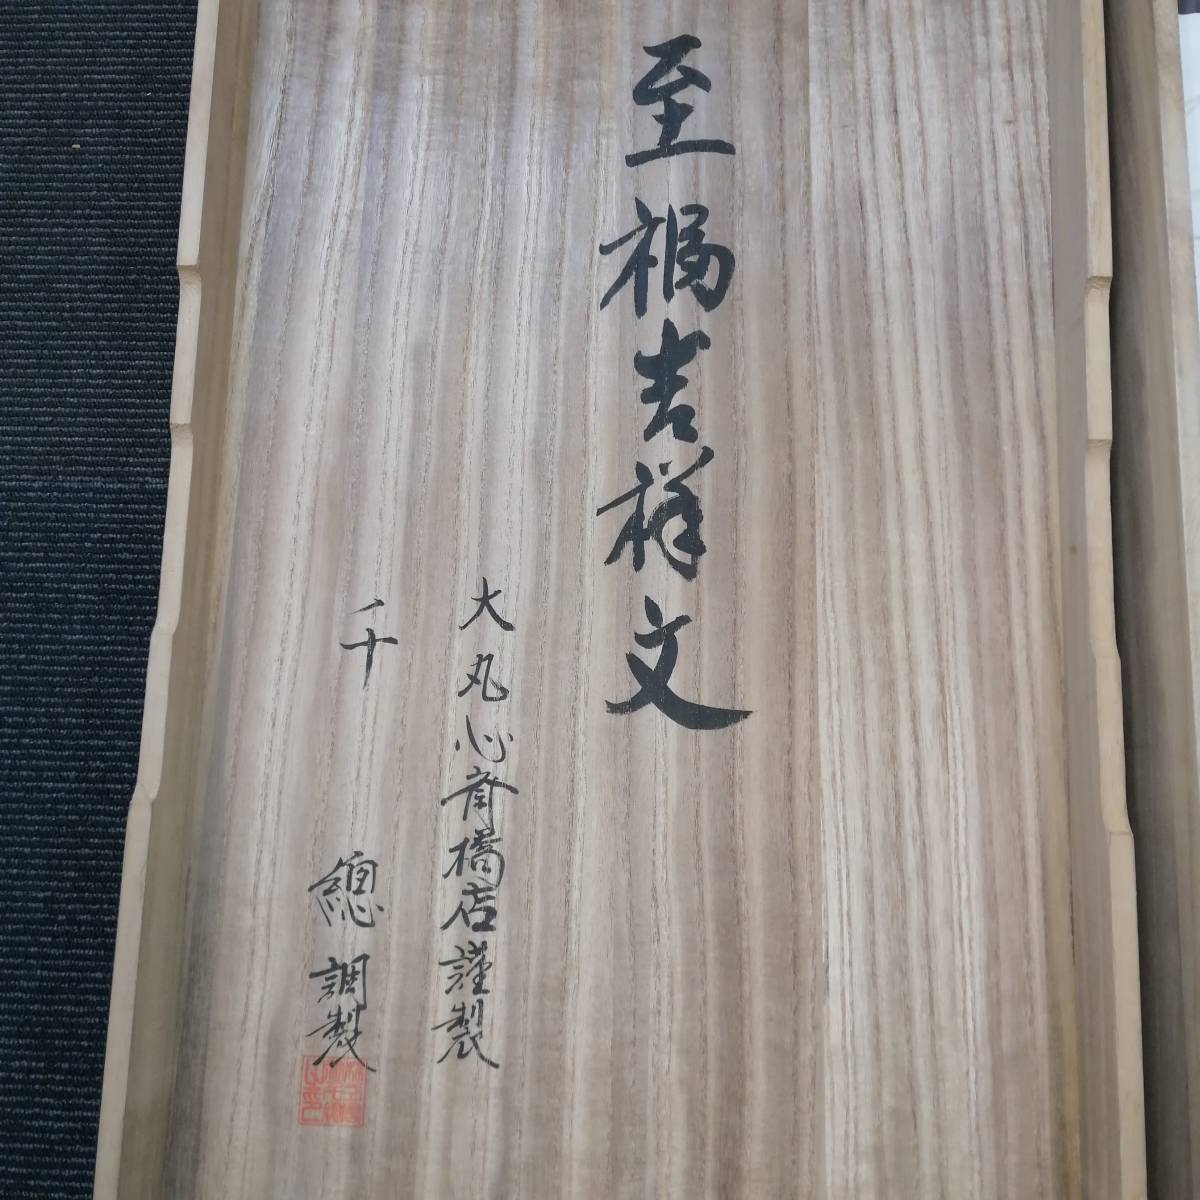 至福吉祥文
大丸心斎橋店謹製
千總調製